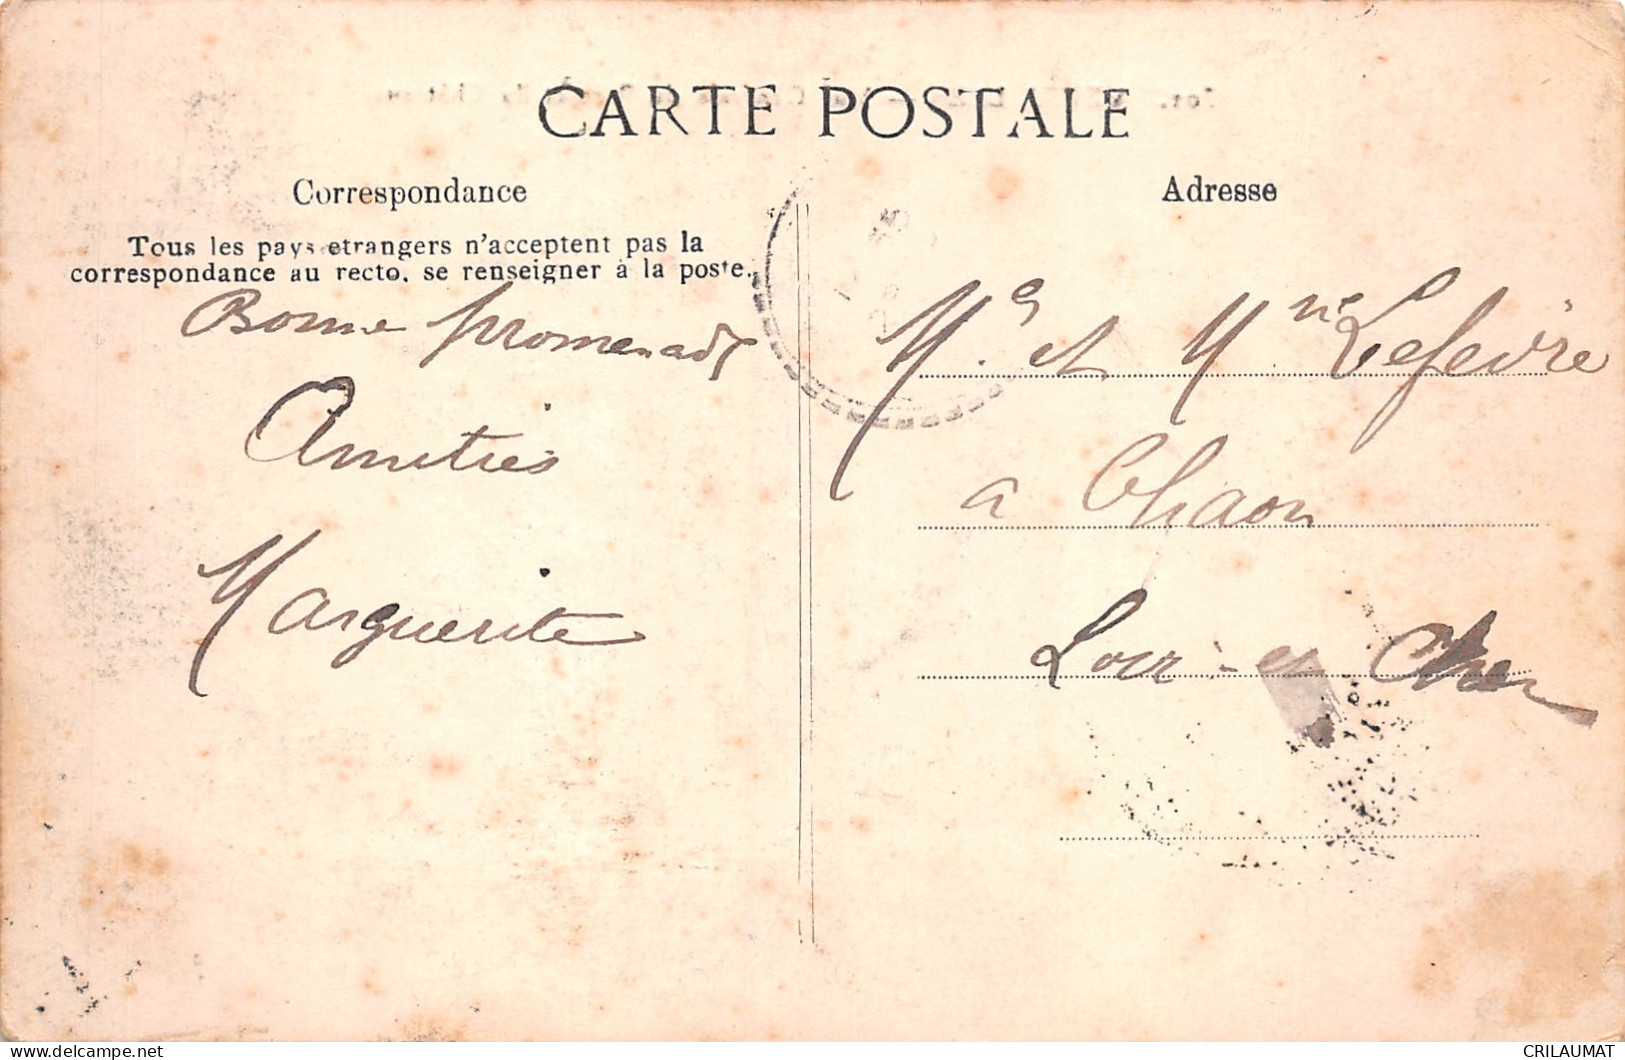 CARTE POSTALE
Correspondance
Tous les pays etrangers n'acceptent pas la
correspondance au recto, se renseigner à la poste.
Bonne promenade
Amitiés
Marguerite
Adresse
Mr et Mme Lefèvre
a Chaon
Loir-et Cher
CRILAUMAT